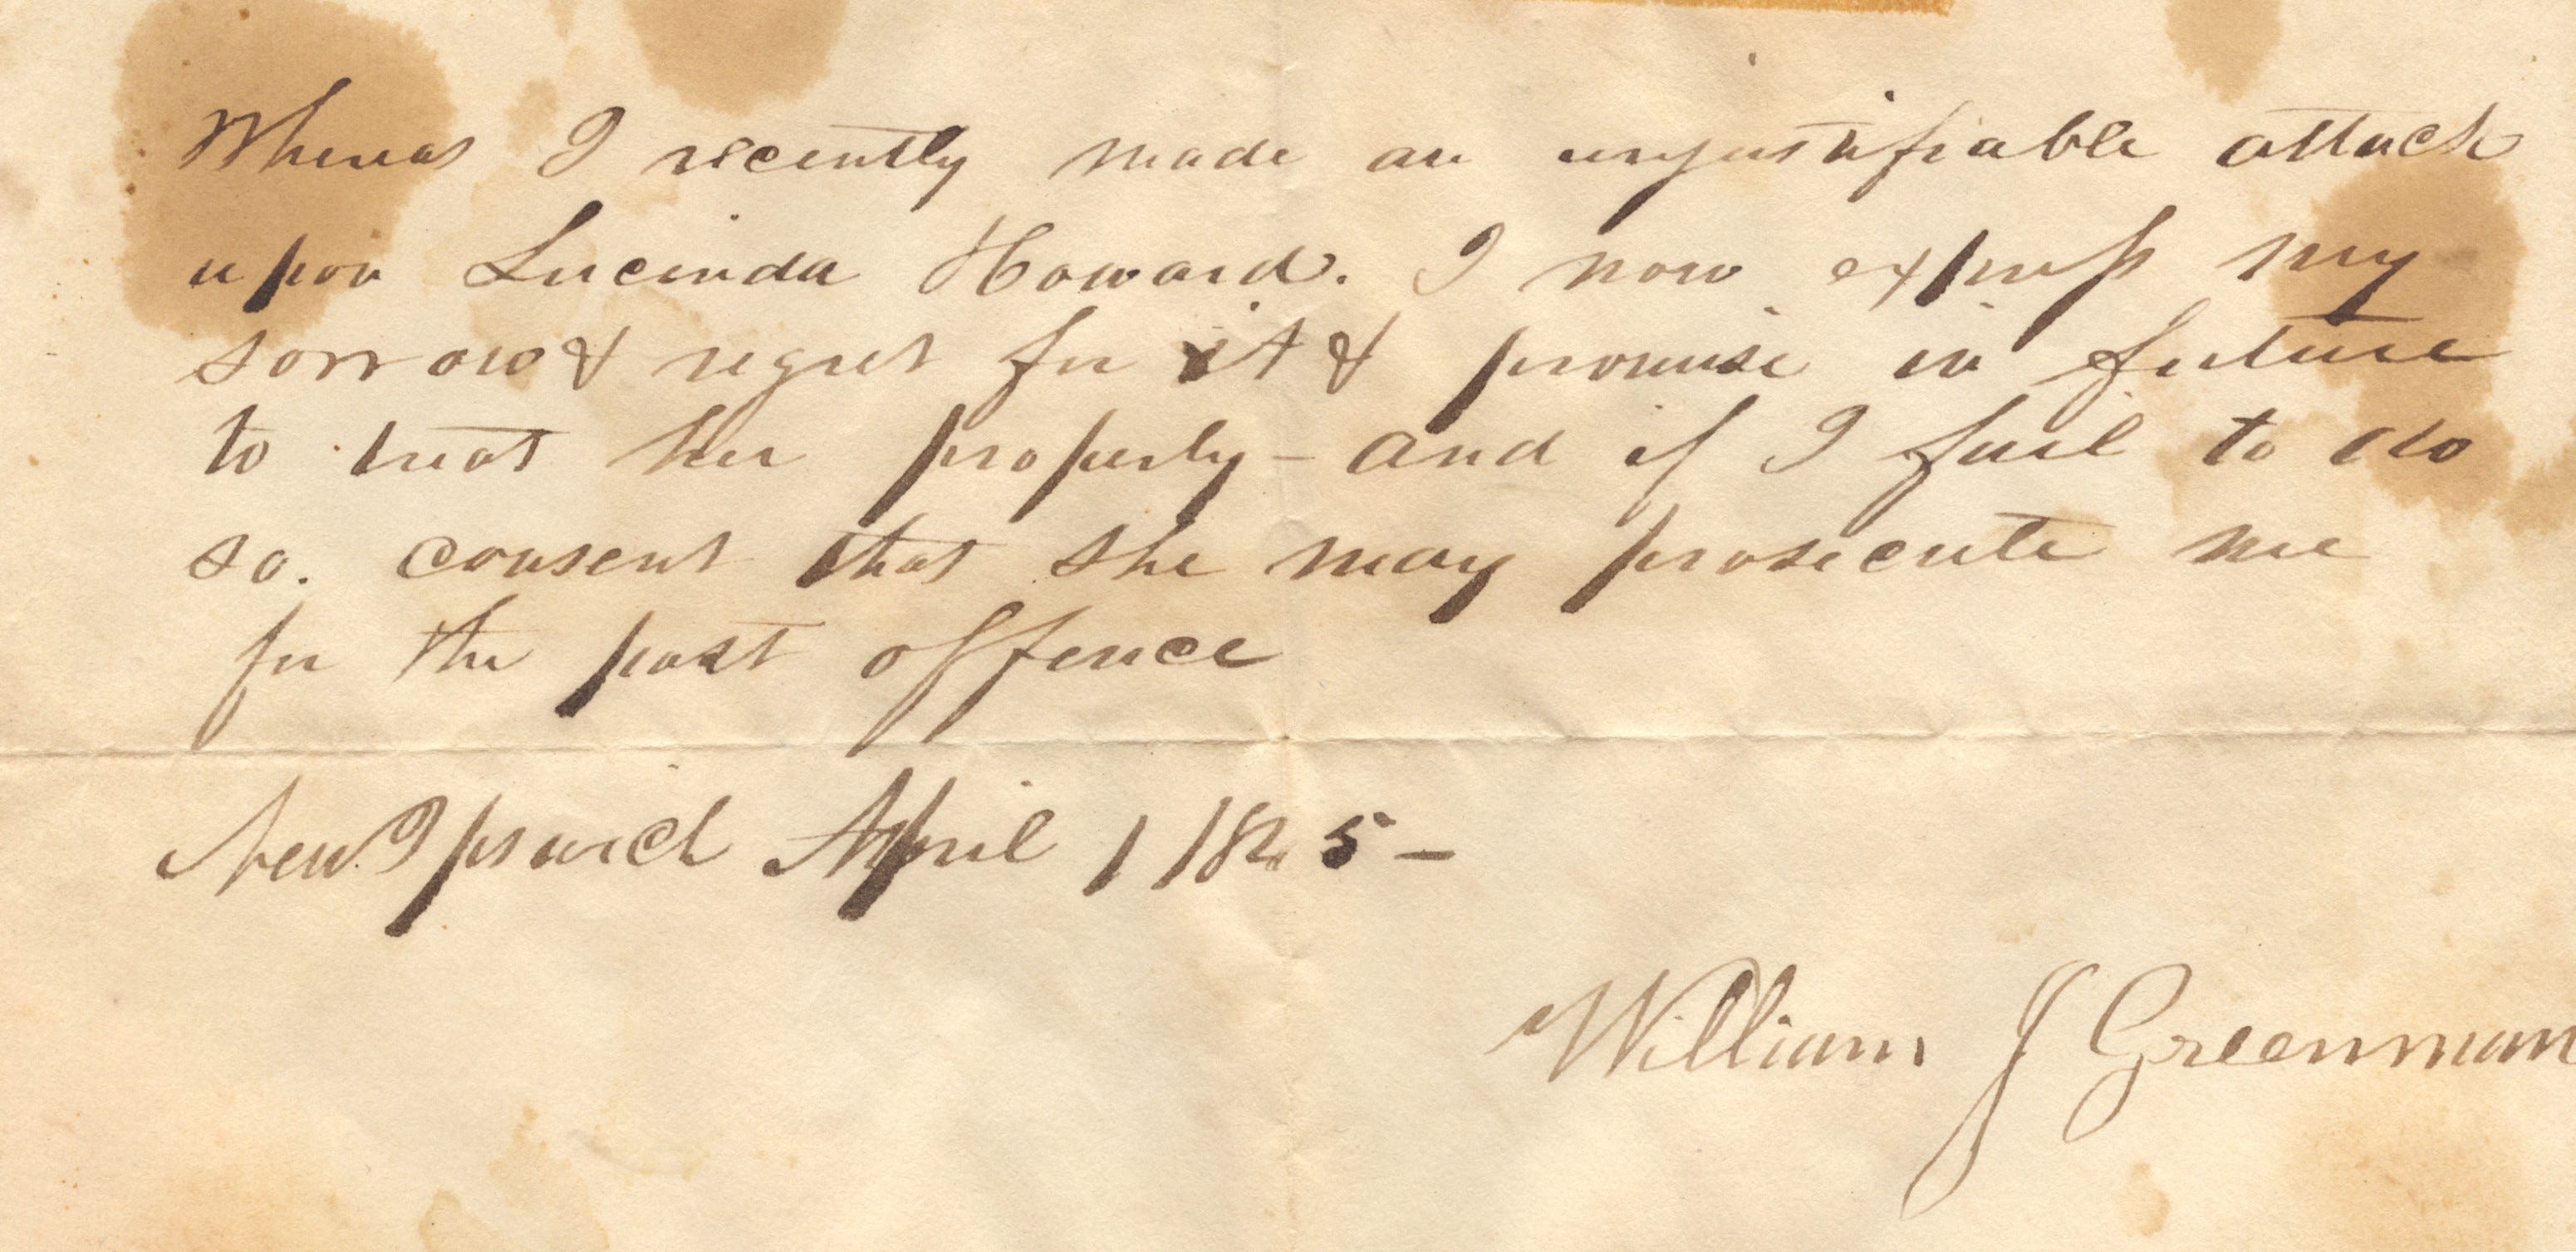 Whereas I recently made an unjustifiable attack
upon Lucinda Howard. I now express my
sorrow & regret for it & promise in future
to treat her properly – and if I fail to do
so. consent that she may prosecute me
for the past offence
New Ipswich April 1 1845 –
William J Greenman